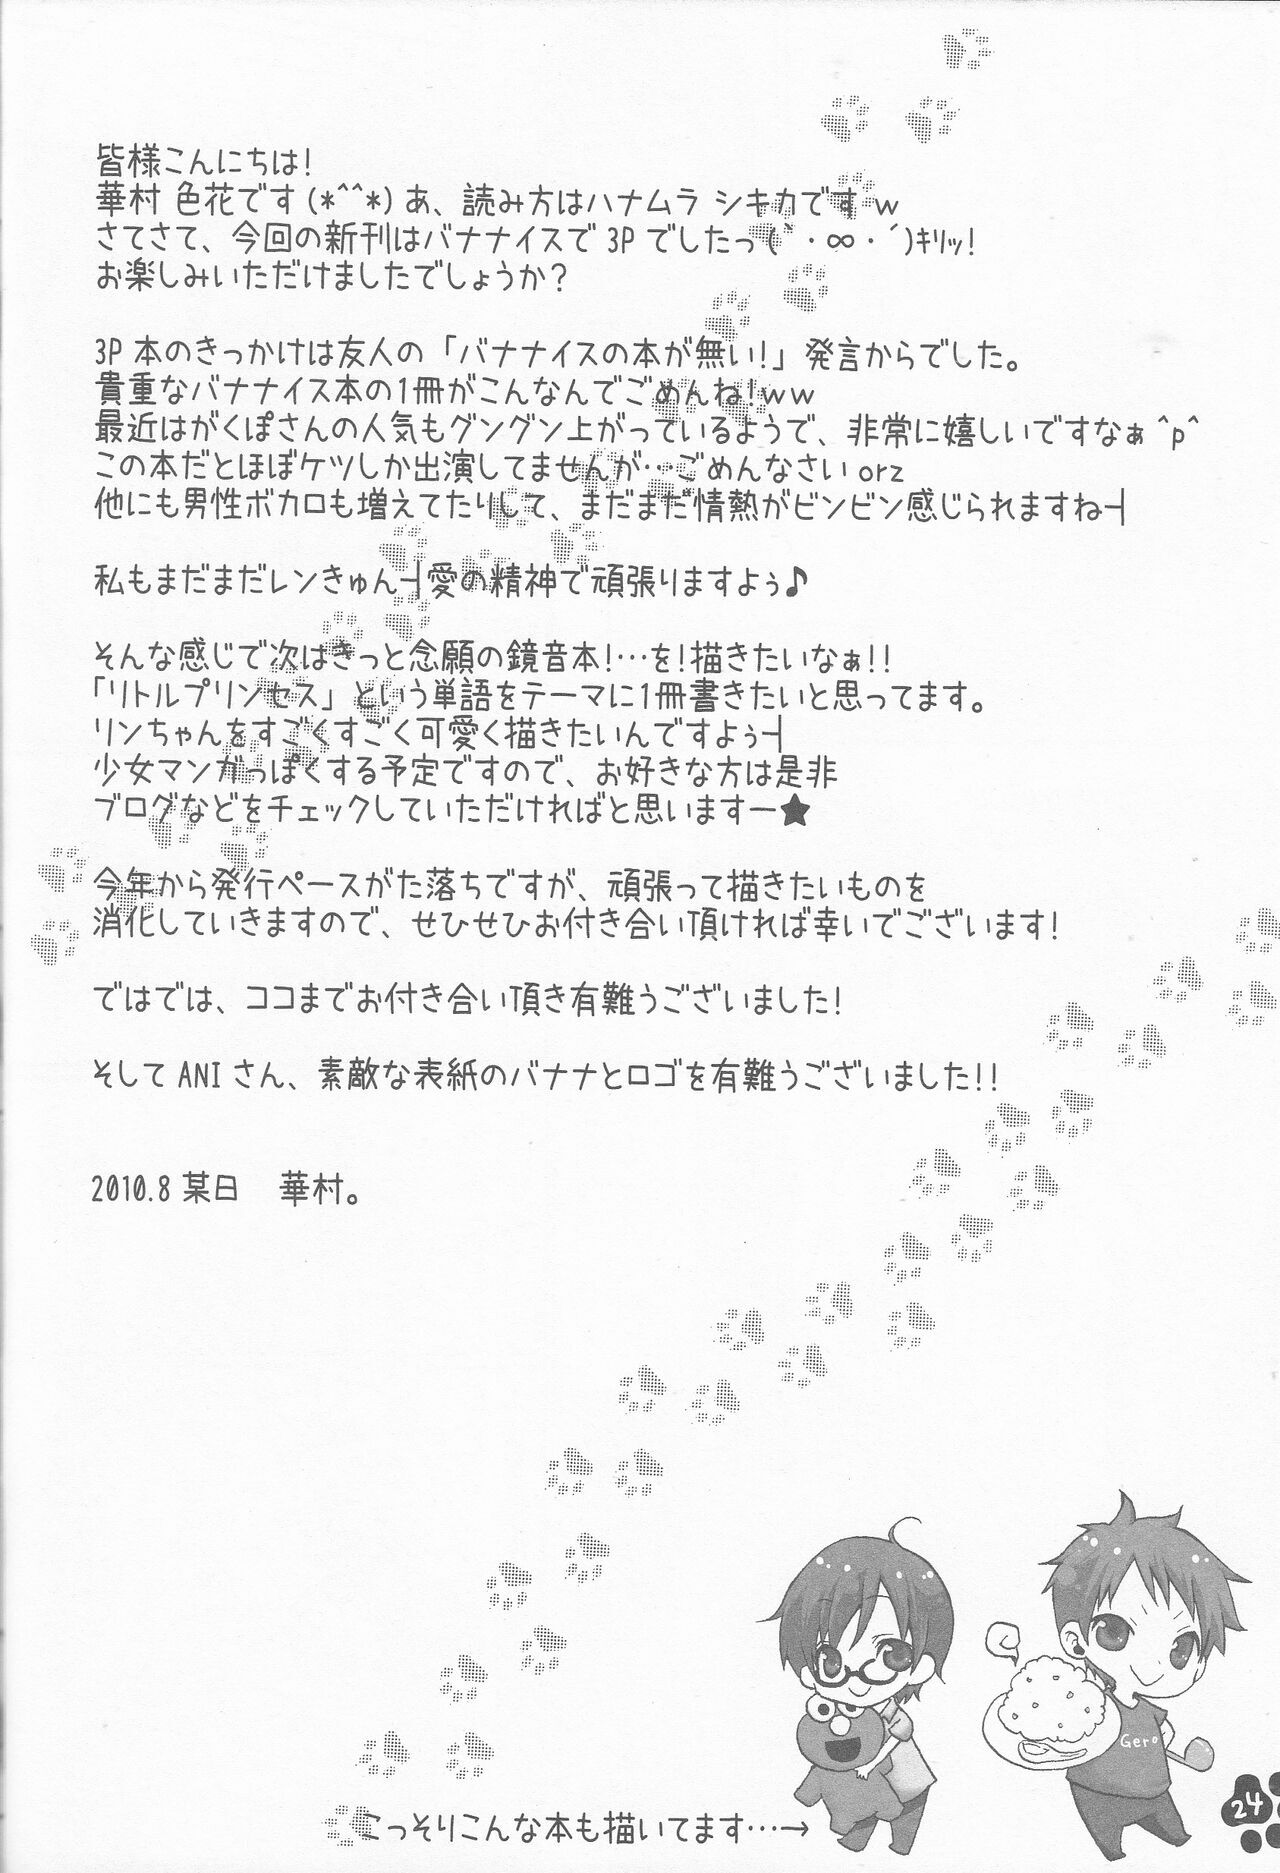 皆様こんにちは!
華村 色花です(*^^*)あ、読み方はハナムラ シキカですw
さてさて、今回の新刊はバナナイスで3Pでしたっ(｀・∞・´)ｷﾘｯ!
お楽しみいただけましたでしょうか?
3P本のきっかけは友人の「バナナイスの本が無い!」発言からでした。
貴重なバナナイス本の1冊がこんなんでごめんね!ww
最近はがくぽさんの人気もグングン上がっているようで、非常に嬉しいですなぁ^p^
この本だとほぼケツしか出演してませんが…ごめんなさいorz
他にも男性ボカロも増えてたりして、まだまだ情熱がビンビン感じられますね┤
私もまだまだレンきゅん┤愛の精神で頑張りますよぅ♪
そんな感じで次はきっと念願の鏡音本!…を!描きたいなぁ!!
「リトルプリンセス」という単語をテーマに1冊書きたいと思ってます。
リンちゃんをすごくすごく可愛く描きたいんですよぅ┤
少女マンガっぽくする予定ですので、お好きな方は是非
ブログなどをチェックしていただければと思いますー★
今年から発行ペースがた落ちですが、頑張って描きたいものを
消化していきますので、ぜひぜひお付き合い頂ければ幸いでございます!
ではでは、ココまでお付き合い頂き有難うございました!
そしてANIさん、素敵な表紙のバナナとロゴを有難うございました!!
2010.8某日　華村。
Gero
こっそりこんな本も描いてます…→
24